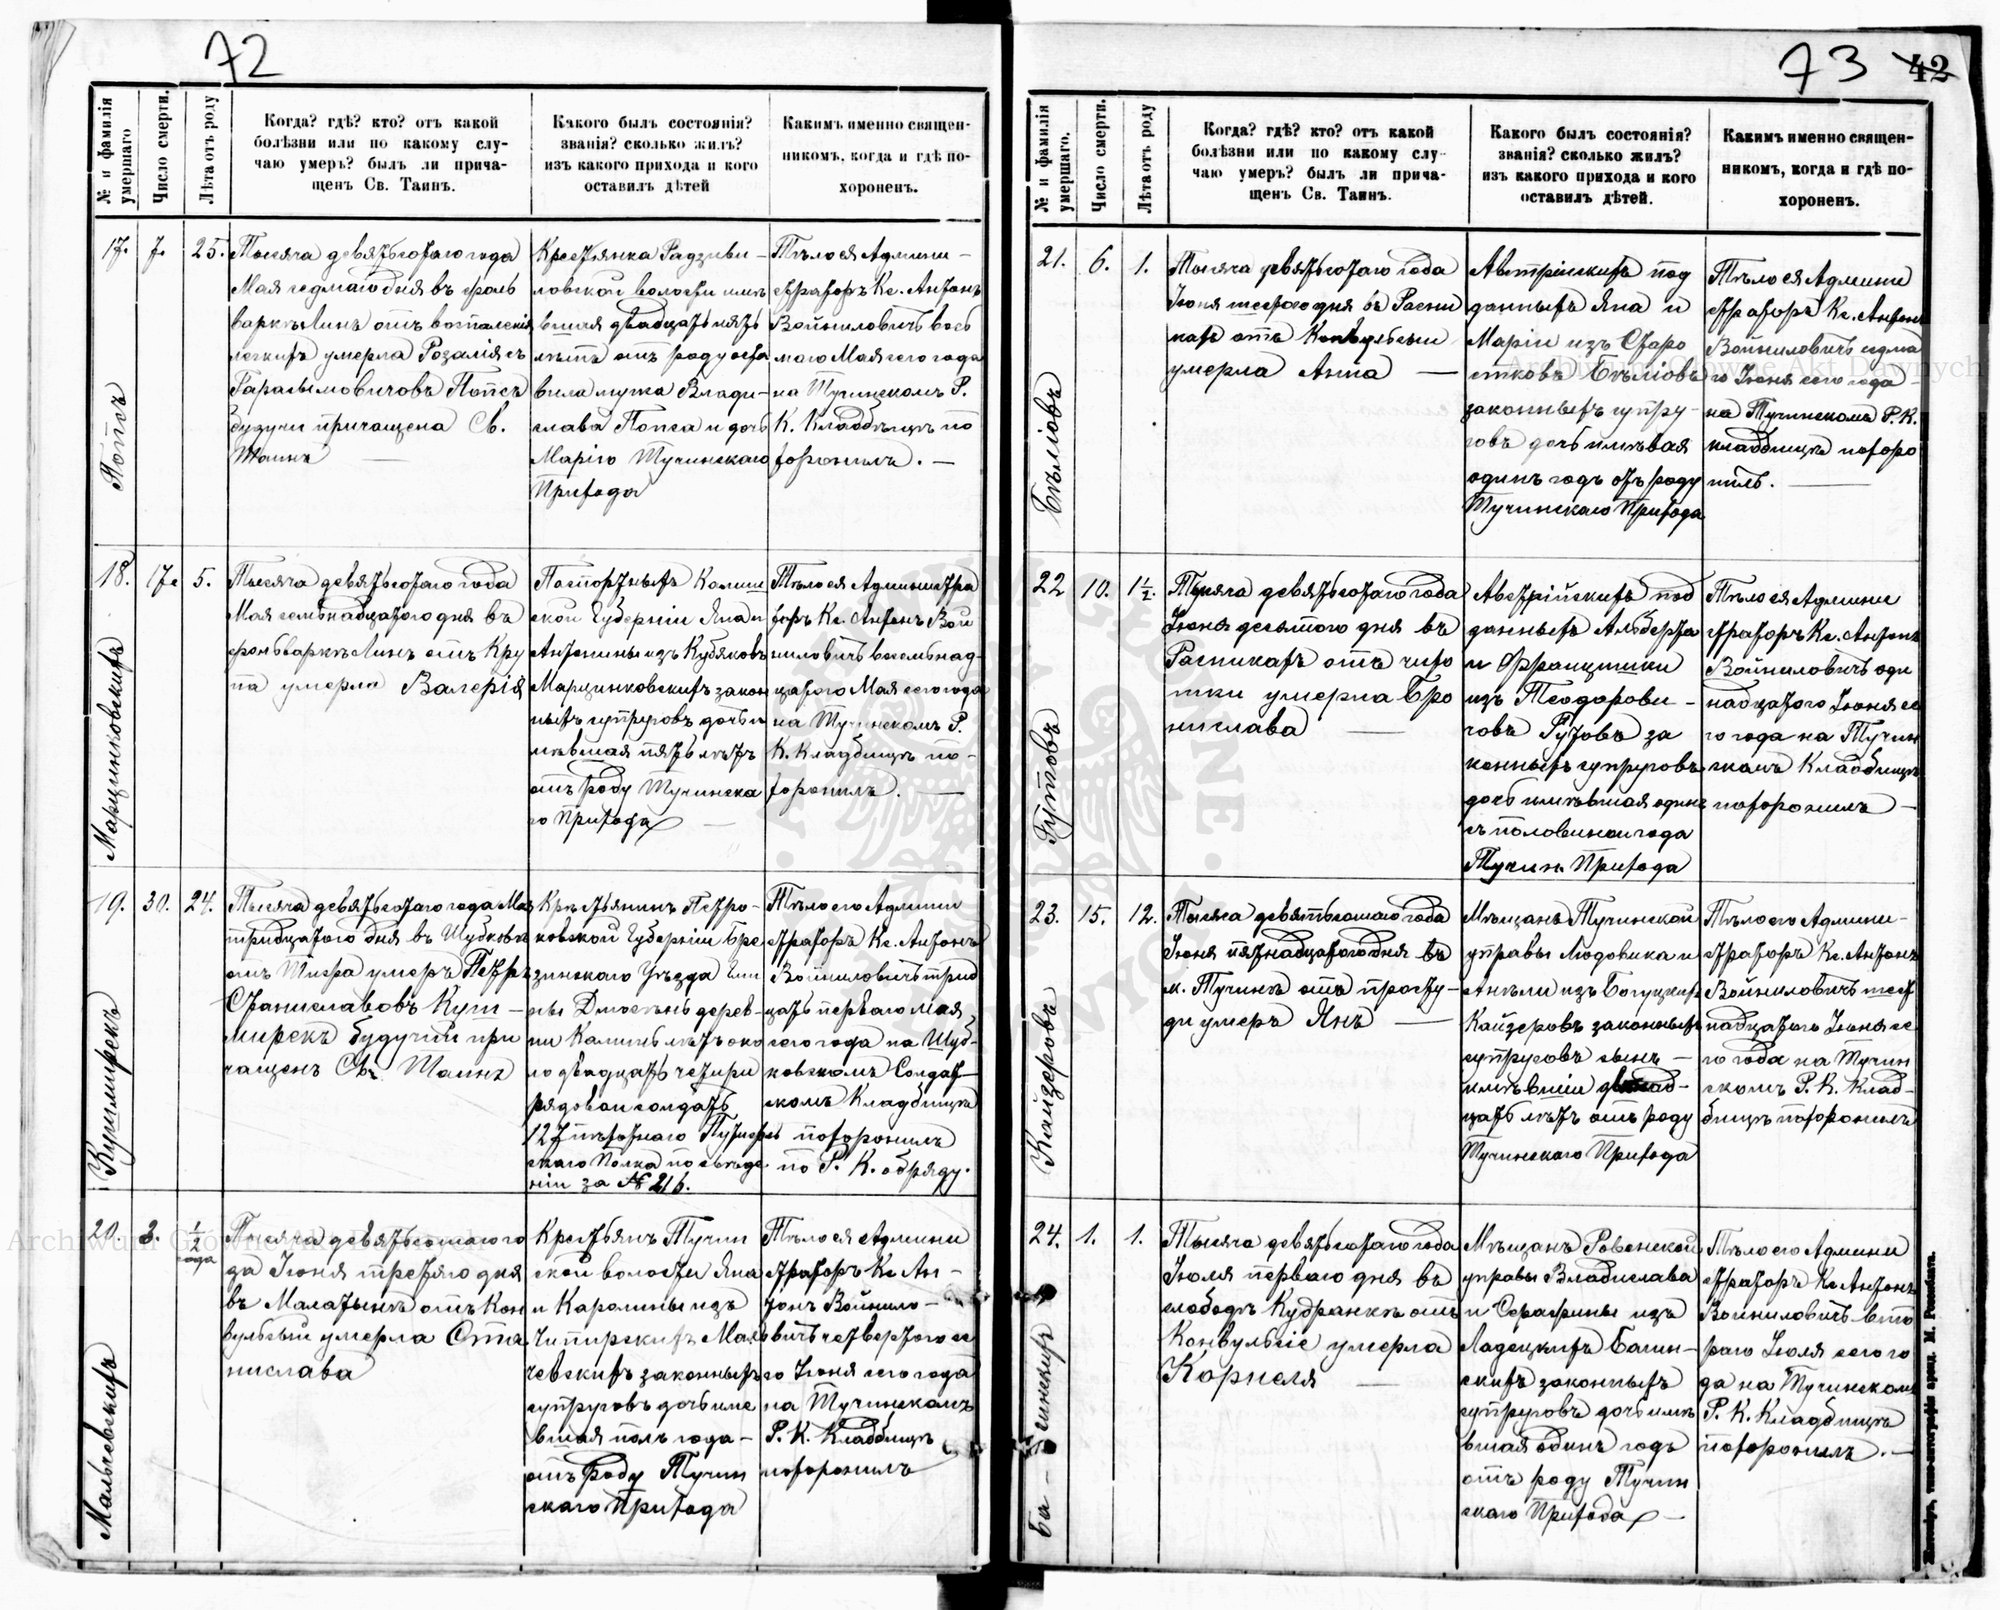 72
№ и фамилія умершаго
Число смерти.
Лѣта отъ роду
Когда? гдѣ? кто? отъ какой
болѣзни или по какому слу-
чаю умеръ? былъ ли прича-
щенъ Св. Таинъ.
Какого былъ состоянія?
званія? сколько жилъ?
изъ какого прихода и кого
оставилъ дѣтей
Какимъ именно священ-
никомъ, когда и гдѣ по-
хороненъ.
17.
Попсъ
7.
25.
Тысяча девятьсотаго года
Мая седмаго дня въ фоль
варкѣ Линъ отъ воспаленія
легкихъ умерла Розалія съ
Гарасымовичовъ Попсъ
будучи причащена Св.
Таинъ —
Крестьянка Радзиви-
ловской волости имѣ
вшая двадцать пять
лѣтъ отъ роду оста
вила мужа Влади-
слава Попса и дочь
Марію Тучинскаго
Прихода
Тѣло ея Админи-
страторъ Кс. Антонъ
Войниловичъ вось
маго Мая сего года
на Тучинскомъ Р.
К. Кладбищѣ по
хоронилъ. —
18.
Марцинковскихъ
17.
5.
Тысяча девятьсотаго года
Мая семьнадцатаго дня въ
фольваркѣ Линъ отъ Кру
па умерла Валерія
Паспортныхъ Калиш
ской Губерніи Яна и
Антонины изъ Кубяковъ
Марцинковскихъ закон
ныхъ супруговъ дочь и
мѣвшая пять лѣтъ
отъ роду Тучинска
го Прихода —
Тѣло ея Администра
торъ Кс. Антонъ Вой
ниловичъ восемьнад-
цатаго Мая сего года
на Тучинскомъ Р.
К. Кладбищѣ по-
хоронилъ. —
19.
Кушмирекъ
30.
24.
Тысяча девятьсотаго года Мая
тридцатаго дня въ Шубковѣ
отъ Тифа умеръ Петръ
Станиславовъ Куш-
мирекъ будучій при
чащенъ Св. Таинъ
Крѣстьянинъ Петро-
ковской Губерніи Бре
зинскаго Уѣзда Гми
ны Длюсень дерев-
ни Калинь лѣтъ око
ло двадцать четыри
рядовой солдатъ
127 пѣхотнаго Путиль
скаго Полка по свѣде
ніи за № 216.
Тѣло его Админи
страторъ Кс. Антонъ
Войниловичъ трид
цать перваго Мая
сего года на Шуб-
ковскомъ Солдат-
скомъ Кладбищѣ
похоронилъ
по Р. К. обряду.
20.
Мальчевскихъ
3.
1/2
года
Тысяча девятьсотаго го
да Іюня третяго дня
въ Малатынѣ отъ Кон
вульсыи умерла Ста
нислава
Крестьянъ Тучин
ской волости Яна
и Каролины изъ
Чипирскихъ Маль
чевскихъ законныхъ
супруговъ дочь имѣ
вшая полъ года-
отъ роду Тучин
скаго Прихода
Тѣло ея Админи
страторъ Кс Ан-
тонъ Войнило-
вичъ четвертого се
го Іюня сего года
на Тучинскомъ
Р. К. Кладбищѣ
похоронилъ
73
42
№ и фамилія умершаго.
Число смерти.
Лѣта отъ роду
Когда? гдѣ? кто? отъ какой
болѣзни или по какому слу-
чаю умеръ? былъ ли прича-
щенъ Св. Таинъ.
Какого былъ состоянія?
званія? сколько жилъ?
изъ какого прихода и кого
оставилъ дѣтей.
Какимъ именно священ-
никомъ, когда и гдѣ по-
хороненъ.
21.
Бѣліовъ
6.
1.
Тысяча девятьсотаго года
Іюня шестого дня въ Расни
кахъ отъ Конвульсыи
умерла Анна —
Австрійскихъ под
данныхъ Яна и
Маріи изъ Старо
стковъ Бѣліовъ
законныхъ супру-
говъ дочь имѣвшая
одинъ годъ отъ роду
Тучинскаго Прихода
Тѣло ея Админи
страторъ Кс. Антонъ
Войниловичъ седма
го Іюня сего года
на Тучинскомъ Р. К.
кладбищѣ похоро
нилъ. —
22
Гутовъ
10.
1 1/2.
Тысяча девятьсотаго года
Іюня десятого дня въ
Расникахъ отъ чихо
тки умерла Бро
нислава —
Австрійскихъ под
данныхъ Альберта
и Францишки
изъ Теодорови-
човъ Гутовъ за
конныхъ супруговъ
дочь имѣвшая одинъ
съ половиною года
Тучин. Прихода
Тѣло ея Админи
страторъ Кс. Антонъ
Войниловичъ оди
надцатого Іюня се
го года на Тучин
скомъ Кладбищѣ
похоронилъ —
23.
Кайзеровъ
15.
12.
Тысяча девятьсотаго года
Іюня пятнадцатого дня въ
м. Тучинѣ отъ просту-
ды умеръ Янъ —
Мѣщанъ Тучинской
управы Людовика и
Анѣли изъ Богуцкихъ
Кайзеровъ законныхъ
супруговъ сынъ —
имѣвшій двѣнад-
цать лѣтъ отъ роду
Тучинскаго Прихода
Тѣло его Админи-
страторъ Кс. Антонъ
Войниловичъ шест
надцатого Іюня се
го года на Тучин
скомъ Р. К. Клад-
бищѣ похоронилъ
24.
1.
1.
Тысяча девятьсотаго года
Іюля перваго дня въ
слободѣ Кудранкѣ отъ
Конвульсіе умерла
Корнеля —
Мѣщанъ Ровенской
управы Владислава
и Серафины изъ
Ладецкихъ Багин-
скихъ законныхъ
супруговъ дочь имѣ
вшая одинъ годъ
отъ роду Тучин
скаго Прихода —
Тѣло его Админи
страторъ Кс Антонъ
Войниловичъ вто
раго Іюля сего го
да на Тучинскомъ
Р. К. Кладбищѣ
похоронилъ. —
Житоміръ, типо-литографія аренд. М. Рекобита.
Archiwum Główne Akt Dawnych
Archiwum Główne Akt Dawnych